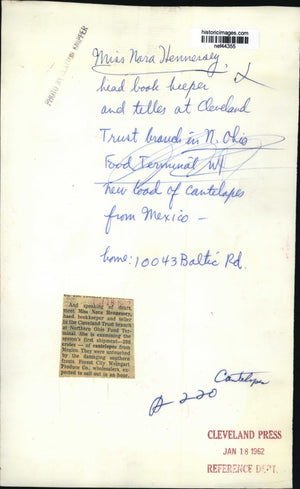 historicimages.com
nef44355
PHOTO BY CLAYTON KNIPPER
Miss Nora Hennersey,
head book keeper
and teller at Cleveland
Trust branch in N. Ohio
Food Terminal W/
new load of cantelopes
from Mexico -
home: 10043 Baltic Rd.
And speaking of dears,
meet Miss Nora Hennessey,
head bookkeeper and teller
in the Cleveland Trust branch
at Northern Ohio Food Ter-
minal. She is examining the
season's first shipment—
crates — of cantelopes from
Mexico. They were untouched
by the damaging southern
frosts. Forest City Weingart
Produce Co., wholesalers, ex-
pected to sell out in an hour.
Cantelope
220
CLEVELAND PRESS
JAN 18 1962
REFERENCE DEPT.